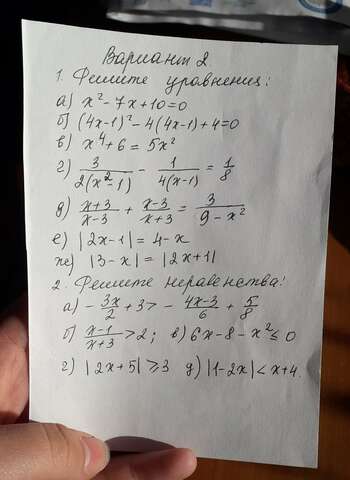 Вариант 2.
1. Решите уравнения:
а) x² - 7x + 10 = 0
б) (4x-1)² - 4(4x-1) + 4 = 0
в) x⁴ + 6 = 5x²
г) 3/(2(x²-1)) - 1/(4(x-1)) = 1/8
д) (x+3)/(x-3) + (x-3)/(x+3) = 3/(9-x²)
е) |2x-1| = 4-x
ж) |3-x| = |2x+1|
2. Решите неравенства:
а) -3x/2 + 3 > -(4x-3)/6 + 5/8
б) (x-1)/(x+3) > 2; в) 6x - 8 - x² ≤ 0
г) |2x+5| ≥ 3 д) |1-2x| < x+4.